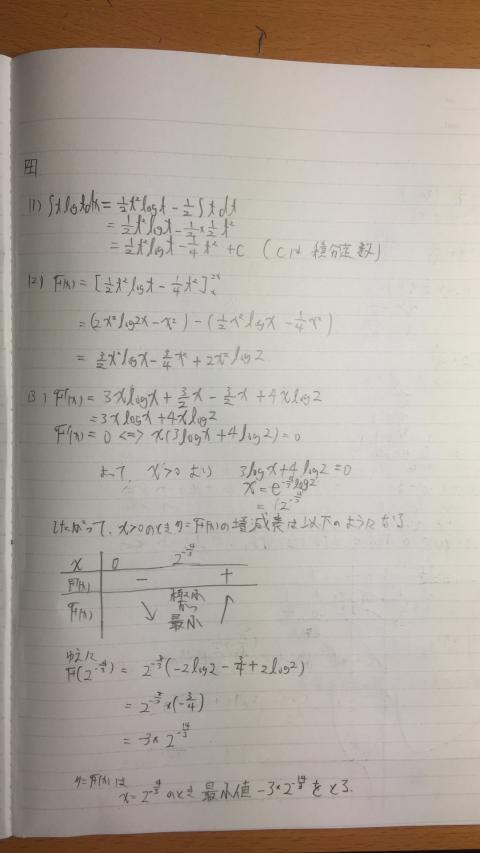 4
(1) ∫t log t dx = 1/2 t² log t - 1/2 ∫t dt
= 1/2 t² log t - 1/2 × 1/2 t²
= 1/2 t² log t - 1/4 t² + C (Cは積分定数)
(2) F(x) = [1/2 t² log t - 1/4 t²]_x^2x
= (2x² log 2x - x²) - (1/2 x² log x - 1/4 x²)
= 3/2 x² log x - 3/4 x² + 2x² log 2
(3) F'(x) = 3x log x + 3/2 x - 3/2 x + 4x log 2
= 3x log x + 4x log 2
F'(x) = 0 <=> x(3 log x + 4 log 2) = 0
よって、x>0より 3 log x + 4 log 2 = 0
x = e^(-4/3 log 2)
= 2^(-4/3)
したがって、x>0のときy=F(x)の増減表は以下のようになる。
x 0 2^(-4/3)
F'(x) - +
F(x) ↘ 極小かつ最小 ↑
ゆえに
F(2^(-4/3)) = 2^(-8/3) (-2 log 2 - 3/4 + 2 log 2)
= 2^(-8/3) × (-3/4)
= -3 × 2^(-14/3)
y=F(x)は
x = 2^(-4/3) のとき 最小値 -3 × 2^(-14/3) をとる.